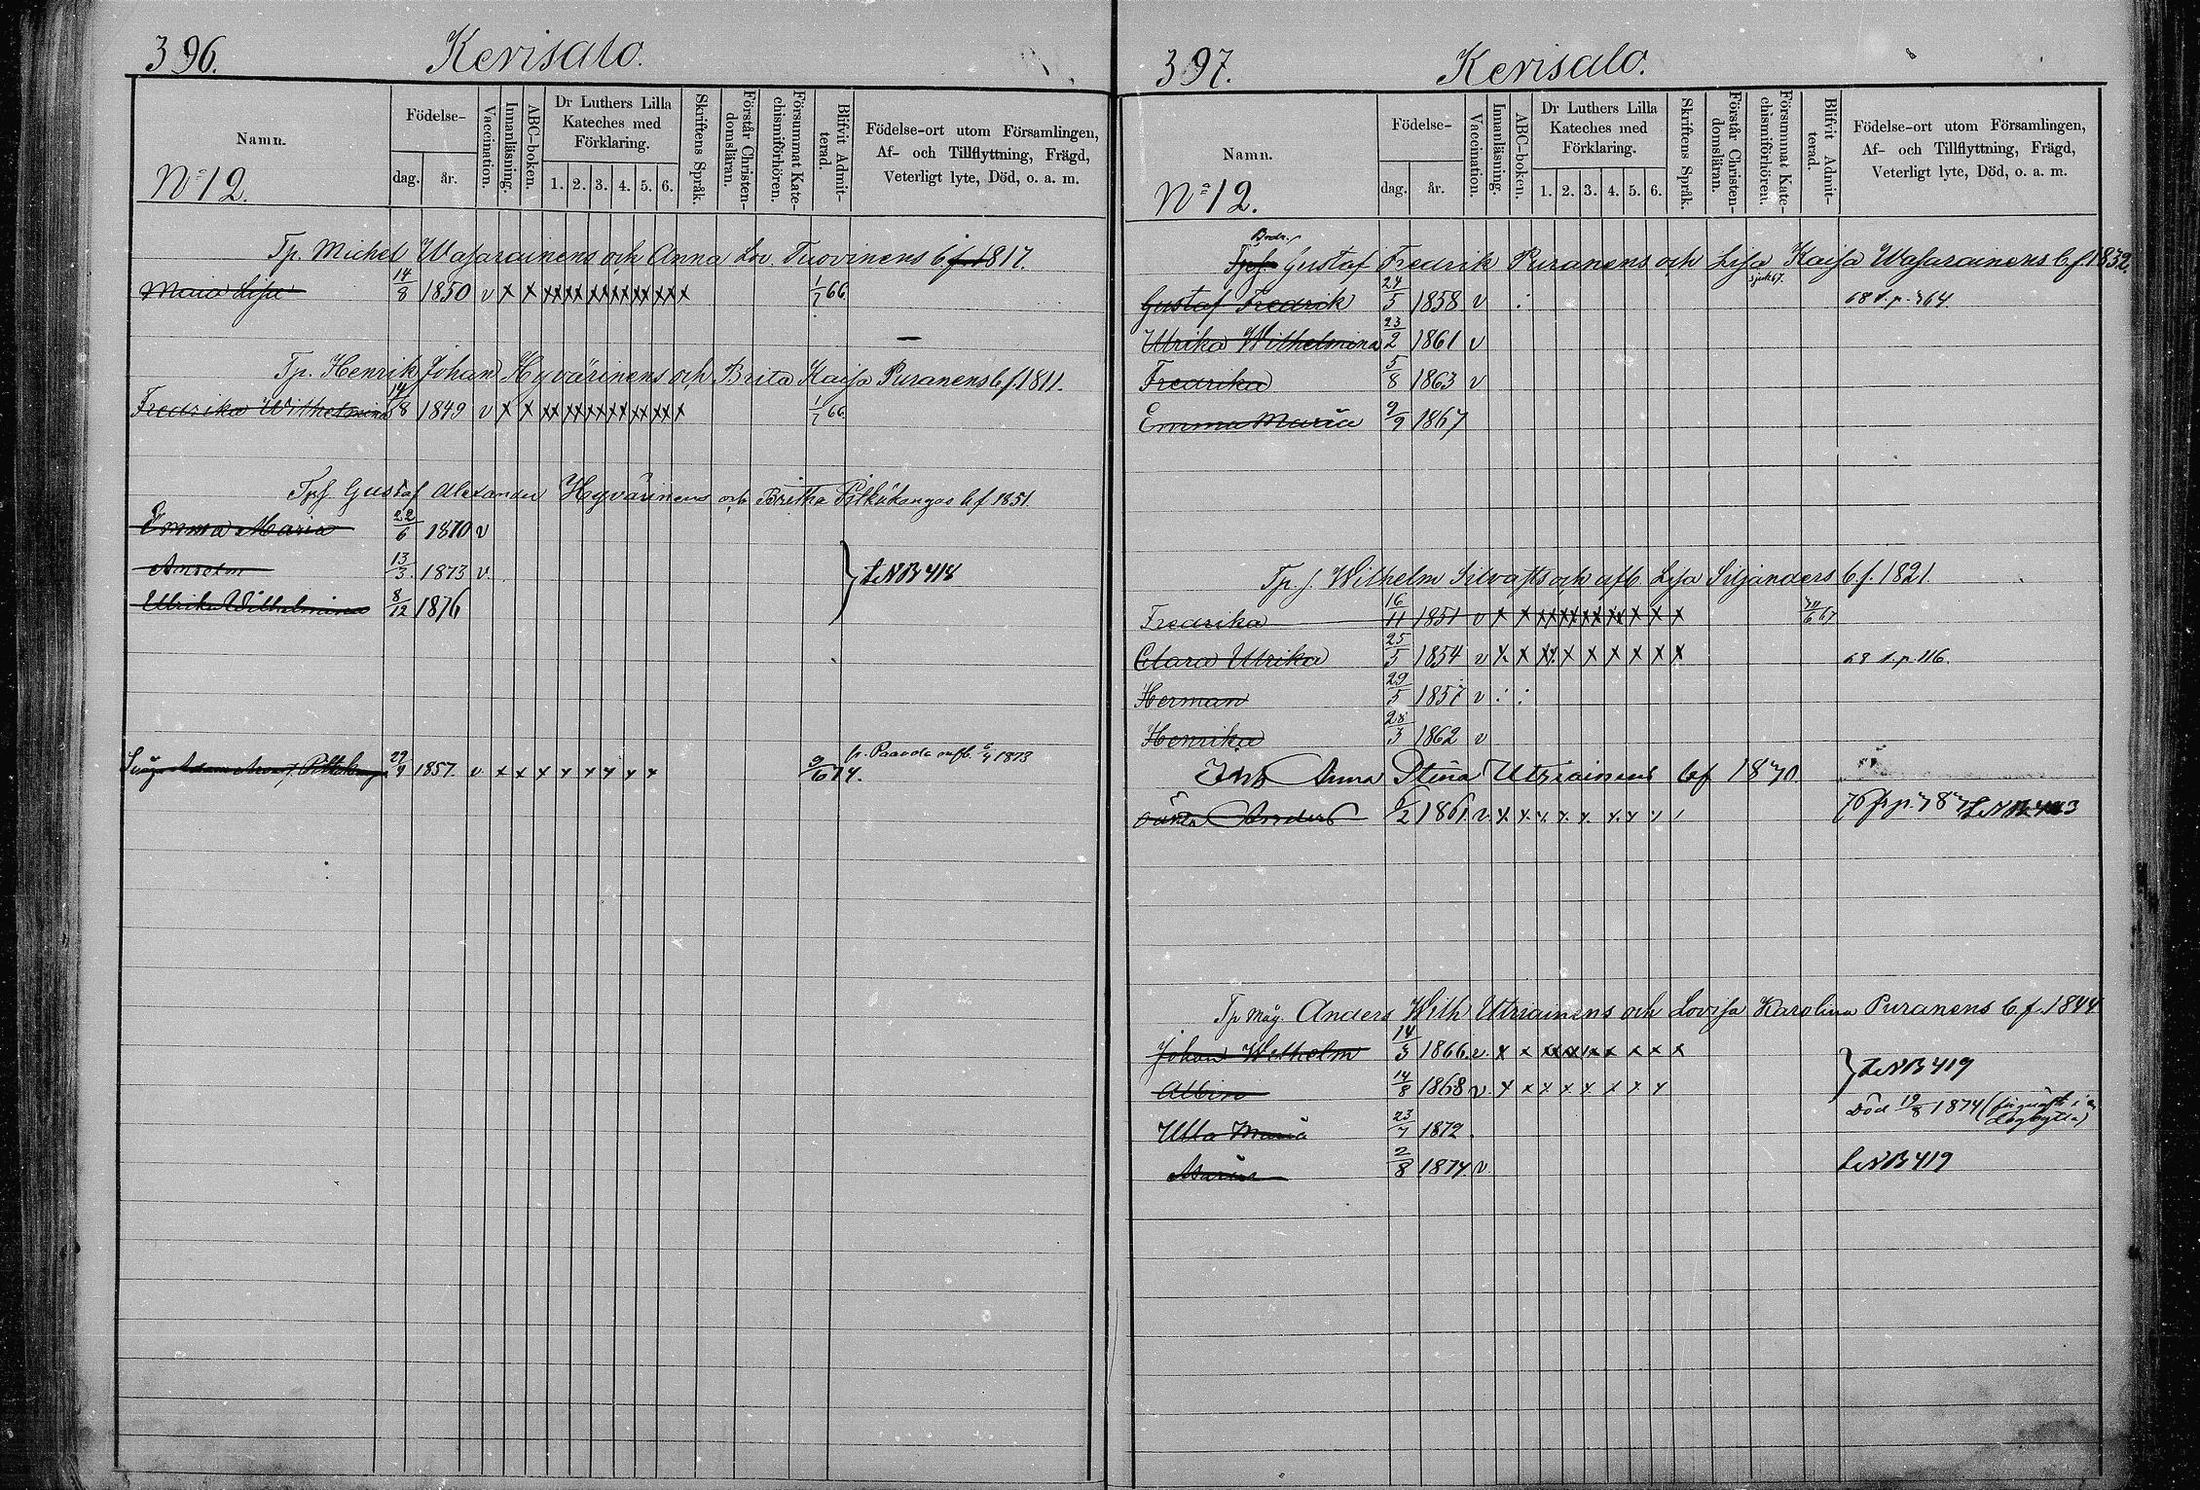 396.
Kerisalo.
Namn.
Födelse-
dag.
år.
Vaccination.
Innanläsning.
ABC-boken.
Dr Luthers Lilla
Kateches med
Förklaring.
1. 2. 3. 4. 5. 6.
Skriftens Språk.
Förstår Christen-
domsläran.
Försummat Kate-
chismiförhören.
Blifvit Admit-
terad.
Födelse-ort utom Församlingen,
Af- och Tillflyttning, Frägd,
Veterligt lyte, Död, o. a. m.
No 12.
Tp. Michel Wasarainens och Anna Lov. Tuovinens b f. 1817.
Maia Lisa 14/8 1850 v x x xx xx xx xx xx xx x 1/7 66
Tp. Henrik Johan Hyvärinens och Brita Kaisa Puranens b f. 1811.
Fredrika Wilhelmina 14/8 1849 v x x xx xx xx xx xx xx x 1/7 66
Tpf Gustaf Alexander Hyvärinens och Britha Pitkäkangas b f 1851.
Emma Maria 22/6 1870 v
Anselm 13/3 1873 v. } LNB 418
Ulrika Wilhelmina 8/12 1876
fr. Paavola 1873
Adam 29/9 1857. v x x x x x x x x 74.
397.
Kerisalo.
Namn.
Födelse-
dag.
år.
Vaccination.
Innanläsning.
ABC-boken.
Dr Luthers Lilla
Kateches med
Förklaring.
1. 2. 3. 4. 5. 6.
Skriftens Språk.
Förstår Christen-
domsläran.
Försummat Kate-
chismiförhören.
Blifvit Admit-
terad.
Födelse-ort utom Församlingen,
Af- och Tillflyttning, Frägd,
Veterligt lyte, Död, o. a. m.
No 12.
Brdr.
Tpf Gustaf Fredrik Puranens och Lisa Kaisa Wasarainens b f 1832.
Gustaf Fredrik 24/5 1858 v : 68 t. p. 364.
Ulrika Wilhelmina 23/2 1861 v
Fredrika 5/8 1863 v
Emma Maria 9/9 1867
Tp. f. Wilhelm Silvasts och afl. Lisa Siljanders b. f. 1821.
Fredrika 16/11 1851 v x x xx xx xx xx x x x 67
Clara Ulrika 25/5 1854 v x x xx x x x x x x 68 t. p. 116.
Herman 29/5 1857 v : :
Henrika 28/3 1862 v
Anna Stina Utriainens bf 1870.
Anders 6/2 1861 v. x x x x x x x x
Tp Måg. Anders Wilh Utriainens och Lovisa Karolina Puranens b. f. 1844
Johan Wilhelm 14/3 1866 v. x x xx xx xx x x x x
Albin 14/8 1868 v. x x x x x x x x } LNB 419
Ulla Maria 23/7 1872. Död 19/8 1874
Maria 2/8 1874 v LNB 419